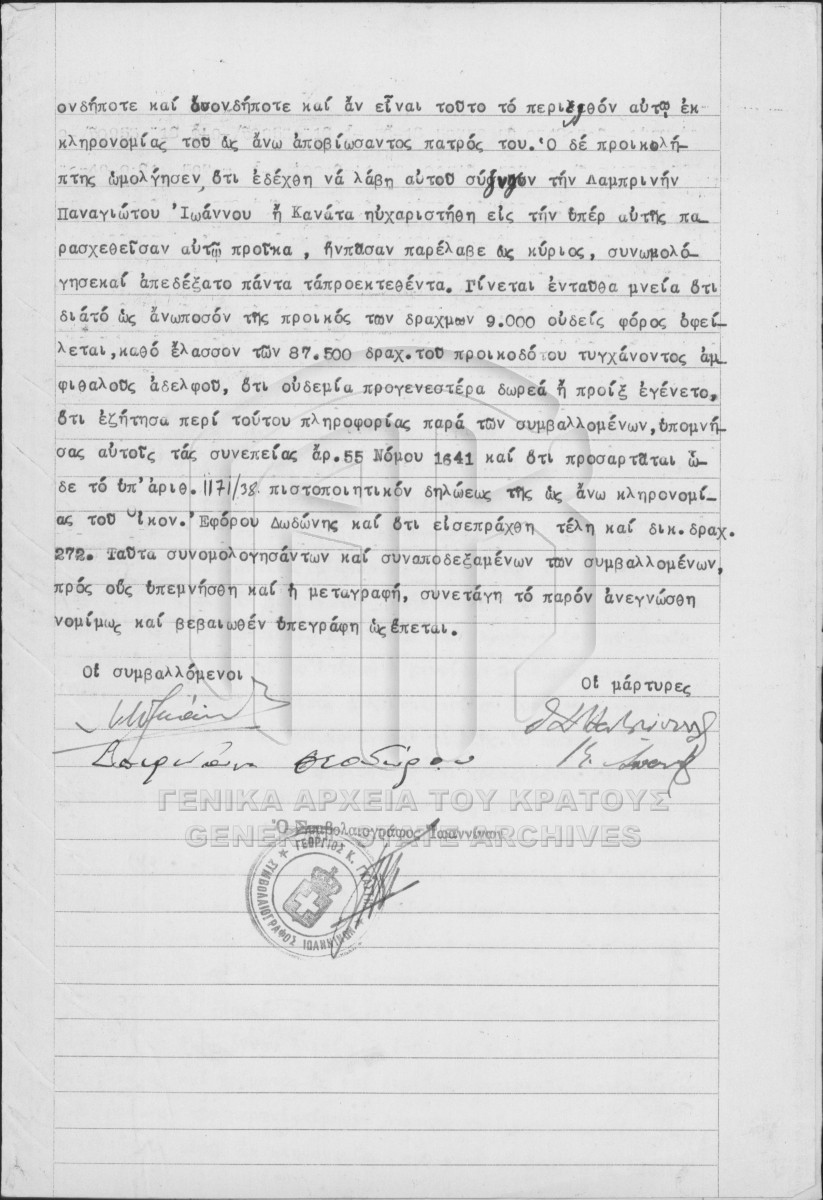 ονδήποτε καί ὅσονδήποτε καί ἄν εἶναι τοῦτο τό περιελθόν αὐτῷ ἐκ
κληρονομίας τοῦ ὡς ἄνω ἀποβιώσαντος πατρός του. Ὁ δέ προικολή-
πτης ὡμολγησεν, ὅτι ἐδέχθη νά λάβη αὑτοῦ σύζυγον τήν Λαμπρινήν
Παναγιώτου Ἰωάννου ἤ Κανάτα ηὐχαριστήθη εἰς τήν ὑπέρ αὐτῆς πα-
ρασχεθεῖσαν αὐτῷ προῖκα, ἥνπᾶσαν παρέλαβε ὡς κύριος, συνωμολό-
γησεκαί ἀπεδέξατο πάντα τάπροεκτεθέντα. Γίνεται ἐνταῦθα μνεία ὅτι
διάτό ὡς ἄνωποσόν τῆς προικός τῶν δραχμῶν 9.000 οὐδείς φόρος ὀφεί-
λεται, καθό ἔλασσον τῶν 87.500 δραχ. τοῦ προικοδότου τυγχάνοντος ἀμ-
φιθαλοῦς ἀδελφοῦ, ὅτι οὐδεμία προγενεστέρα δωρεά ἤ προίξ ἐγένετο,
ὅτι ἐζήτησα περί τούτου πληροφορίας παρά τῶν συμβαλλομένων, ὑπομνή-
σας αὐτοῖς τάς συνεπείας ἄρ. 55 Νόμου 1641 καί ὅτι προσαρτᾶται ὧ-
δε τό ὑπ' ἀριθ. 1171/38 πιστοποιητικόν δηλώεως τῆς ὡς ἄνω κληρονομί-
ας τοῦ Οἰκον. Ἐφόρου Δωδώνης καί ὅτι εἰσεπράχθη τέλη καί δικ. δραχ.
272. Ταῦτα συνομολογησάντων καί συναποδεξαμένων τῶν συμβαλλομένων,
πρός οὕς ὑπεμνήσθη καί ἡ μεταγραφή, συνετάγη τό παρόν ἀνεγνώσθη
νομίμως καί βεβαιωθέν ὑπεγράφη ὡςἕπεται.
Οἱ συμβαλλόμενοι
Οἱ μάρτυρες
ΓΕΝΙΚΑ ΑΡΧΕΙΑ ΤΟΥ ΚΡΑΤΟΥΣ
Ὁ Συμβολαιογράφος Ἰωαννίνων
GENERAL STATE ARCHIVES
ΓΕΩΡΓΙΟΣ Κ.
ΣΥΜΒΟΛΑΙΟΓΡΑΦΟΣ ΙΩΑΝΝΙΝΩΝ